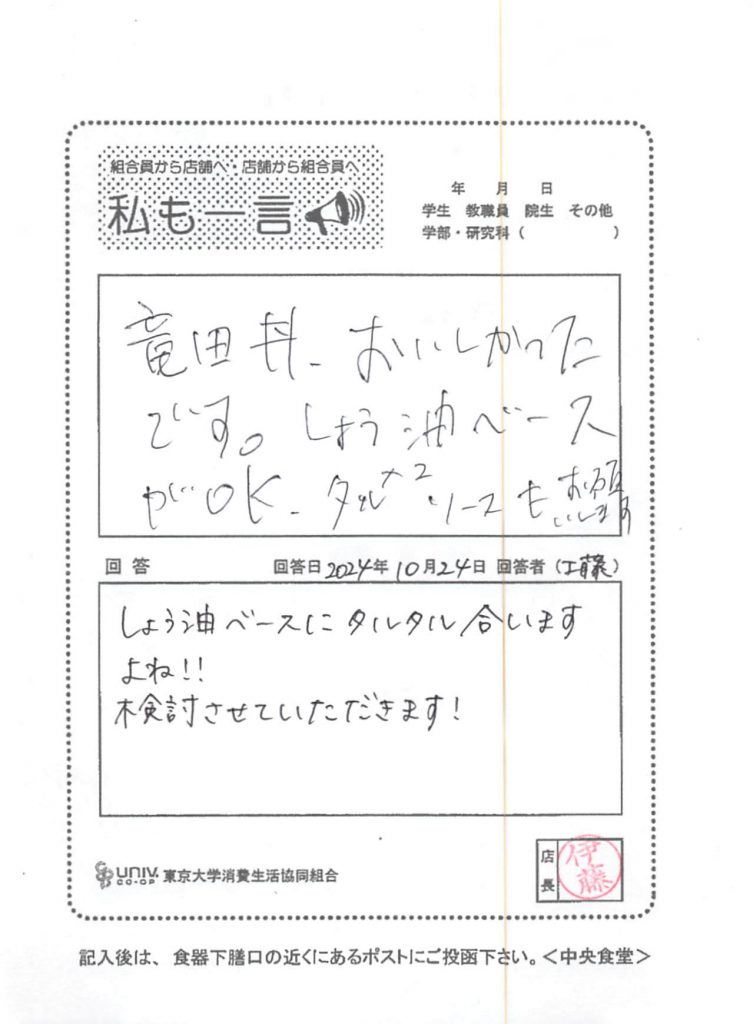 組合員から店舗へ・店舗から組合員へ
私も一言
年 月 日
学生 教職員 院生 その他
学部・研究科( )
竜田丼、おいしかった
です。しょう油ベース
がOK、タル×2ソースもお願いします
回答 回答日2024年10月24日 回答者(工藤)
しょう油ベースにタルタル合います
よね!!
検討させていただきます!
UNIV. CO-OP 東京大学消費生活協同組合
店長 伊藤
記入後は、食器下膳口の近くにあるポストにご投函下さい。<中央食堂>